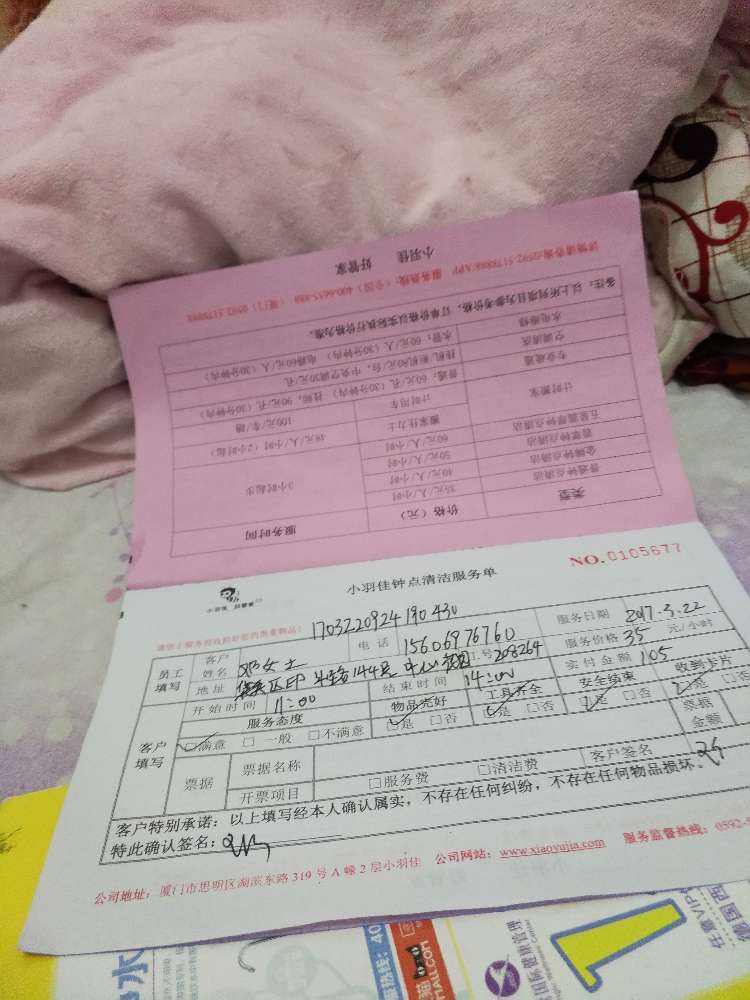 小羽佳 好管家
详情请咨询0592-5178888/APP 服务热线：（全国）400-6655-888 （厦门）0592-5178888
备注：以上所列项目为参考价格，订单价格以实际执行价格为准。
水电维修 水管：60元/人（30分钟内） 电路60元/人（30分钟内）
空调清洗 挂机 柜机80元/台，中央空调30元/孔
专业疏通 普通：60元/孔（30分钟内） 90元/孔（30分钟内）
计时搬家 计时用车 100元/车/趟
搬家佳力士 48元/人/小时（2小时起）
五星翡翠钟点清洁 60元/人/小时
翡翠钟点清洁 50元/人/小时
金牌钟点清洁 40元/人/小时
普通钟点清洁 35元/人/小时
3小时起步
类型 价格（元） 服务时间
小羽佳钟点清洁服务单
NO.0105677
小羽佳 好管家
请您于服务前收拾好您的贵重物品！
170322092419 0430
员工填写
客户姓名 邓女士 电话 15606976760 服务日期 2017.3.22
地址 144号 208264 服务价格 35 元/小时
开始时间 11:00 结束时间 14:00 实付金额 105
客户填写
服务态度 物品完好 工具齐全 安全结束 收到卡片
□满意 □一般 □不满意 □是 □否 □是 □否 □是 □否 □是 □否
票据 票据名称 票据金额
开票项目 □服务费 □清洁费 客户签名
客户特别承诺：以上填写经本人确认属实，不存在任何纠纷，不存在任何物品损坏。
特此确认签名：
公司地址：厦门市思明区湖滨东路319号A幢2层小羽佳 公司网站：www.xiaoyujia.com 服务监督热线：0592-5
水
服务热线：40
天猫
MALL.COM
国际健康管理
1
任意VIP
德国西